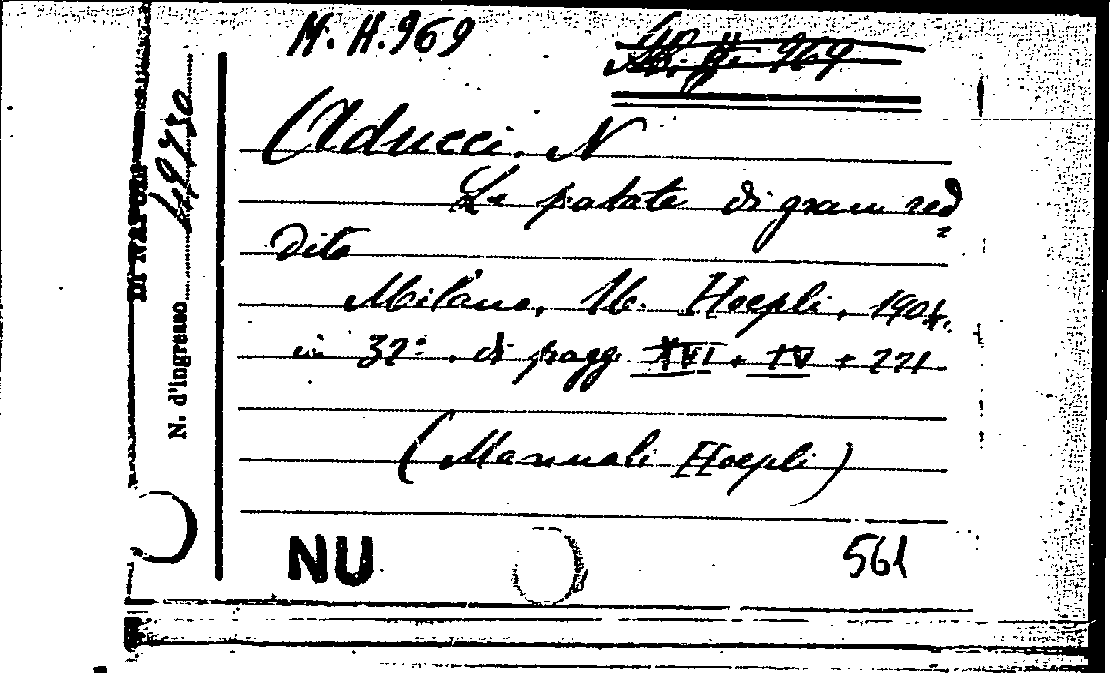 M. H. 969
M. H. 969
DI NAPOLI
N. d'ingresso 49730
Aducci. N
Le patate di gran red=
dito
Milano, U. Hoepli, 1904.
in 32°. di pagg. XVI + IV + 221
(Manuali Hoepli)
NU
561